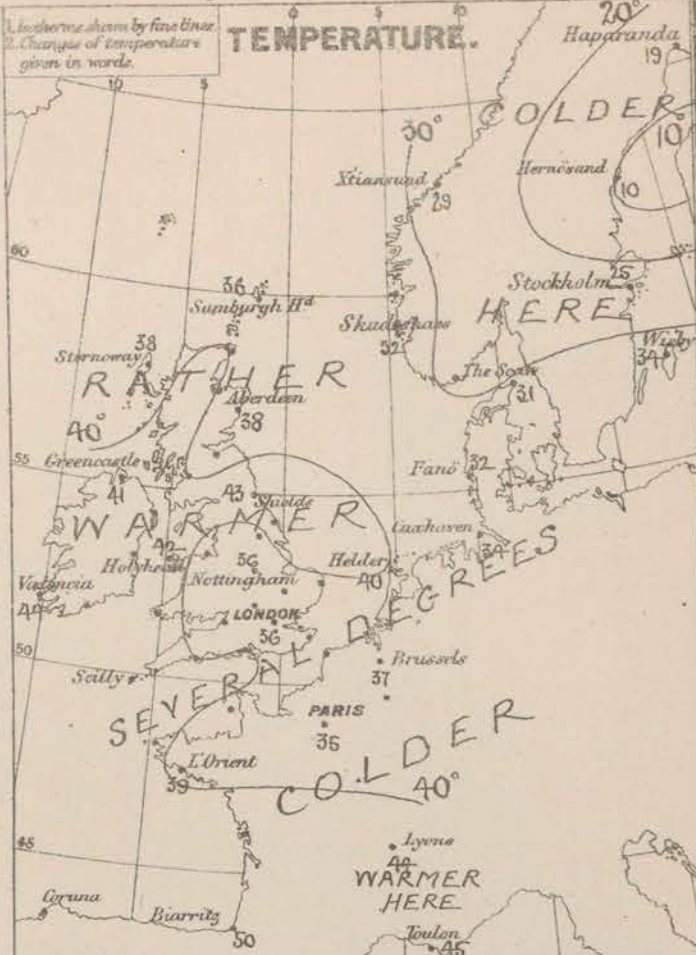 1. Isotherms shown by fine lines.
2. Changes of temperature
given in words.
TEMPERATURE.
10
5
0
5
10
20°
Haparanda
19
OLDER
10°
30°
Xtiansund
29
Hernösand
10
60
36
Sumburgh Hd
Stockholm
25
HERE
Skudesnaes
32
Wisby
34
Stornoway
38
RATHER
The Scaw
31
Aberdeen
38
40°
55
Greencastle
41
Fanö
32
43
Shields
WARMER
Cuxhaven
34
42
Holyhead
36
Nottingham
Helder
40
Valencia
44
LONDON
36
SEVERAL DEGREES
50
Scilly
Brussels
37
PARIS
35
L'Orient
39
COLDER
40°
45
Lyons
44
WARMER
HERE
Coruna
Biarritz
50
Toulon
45